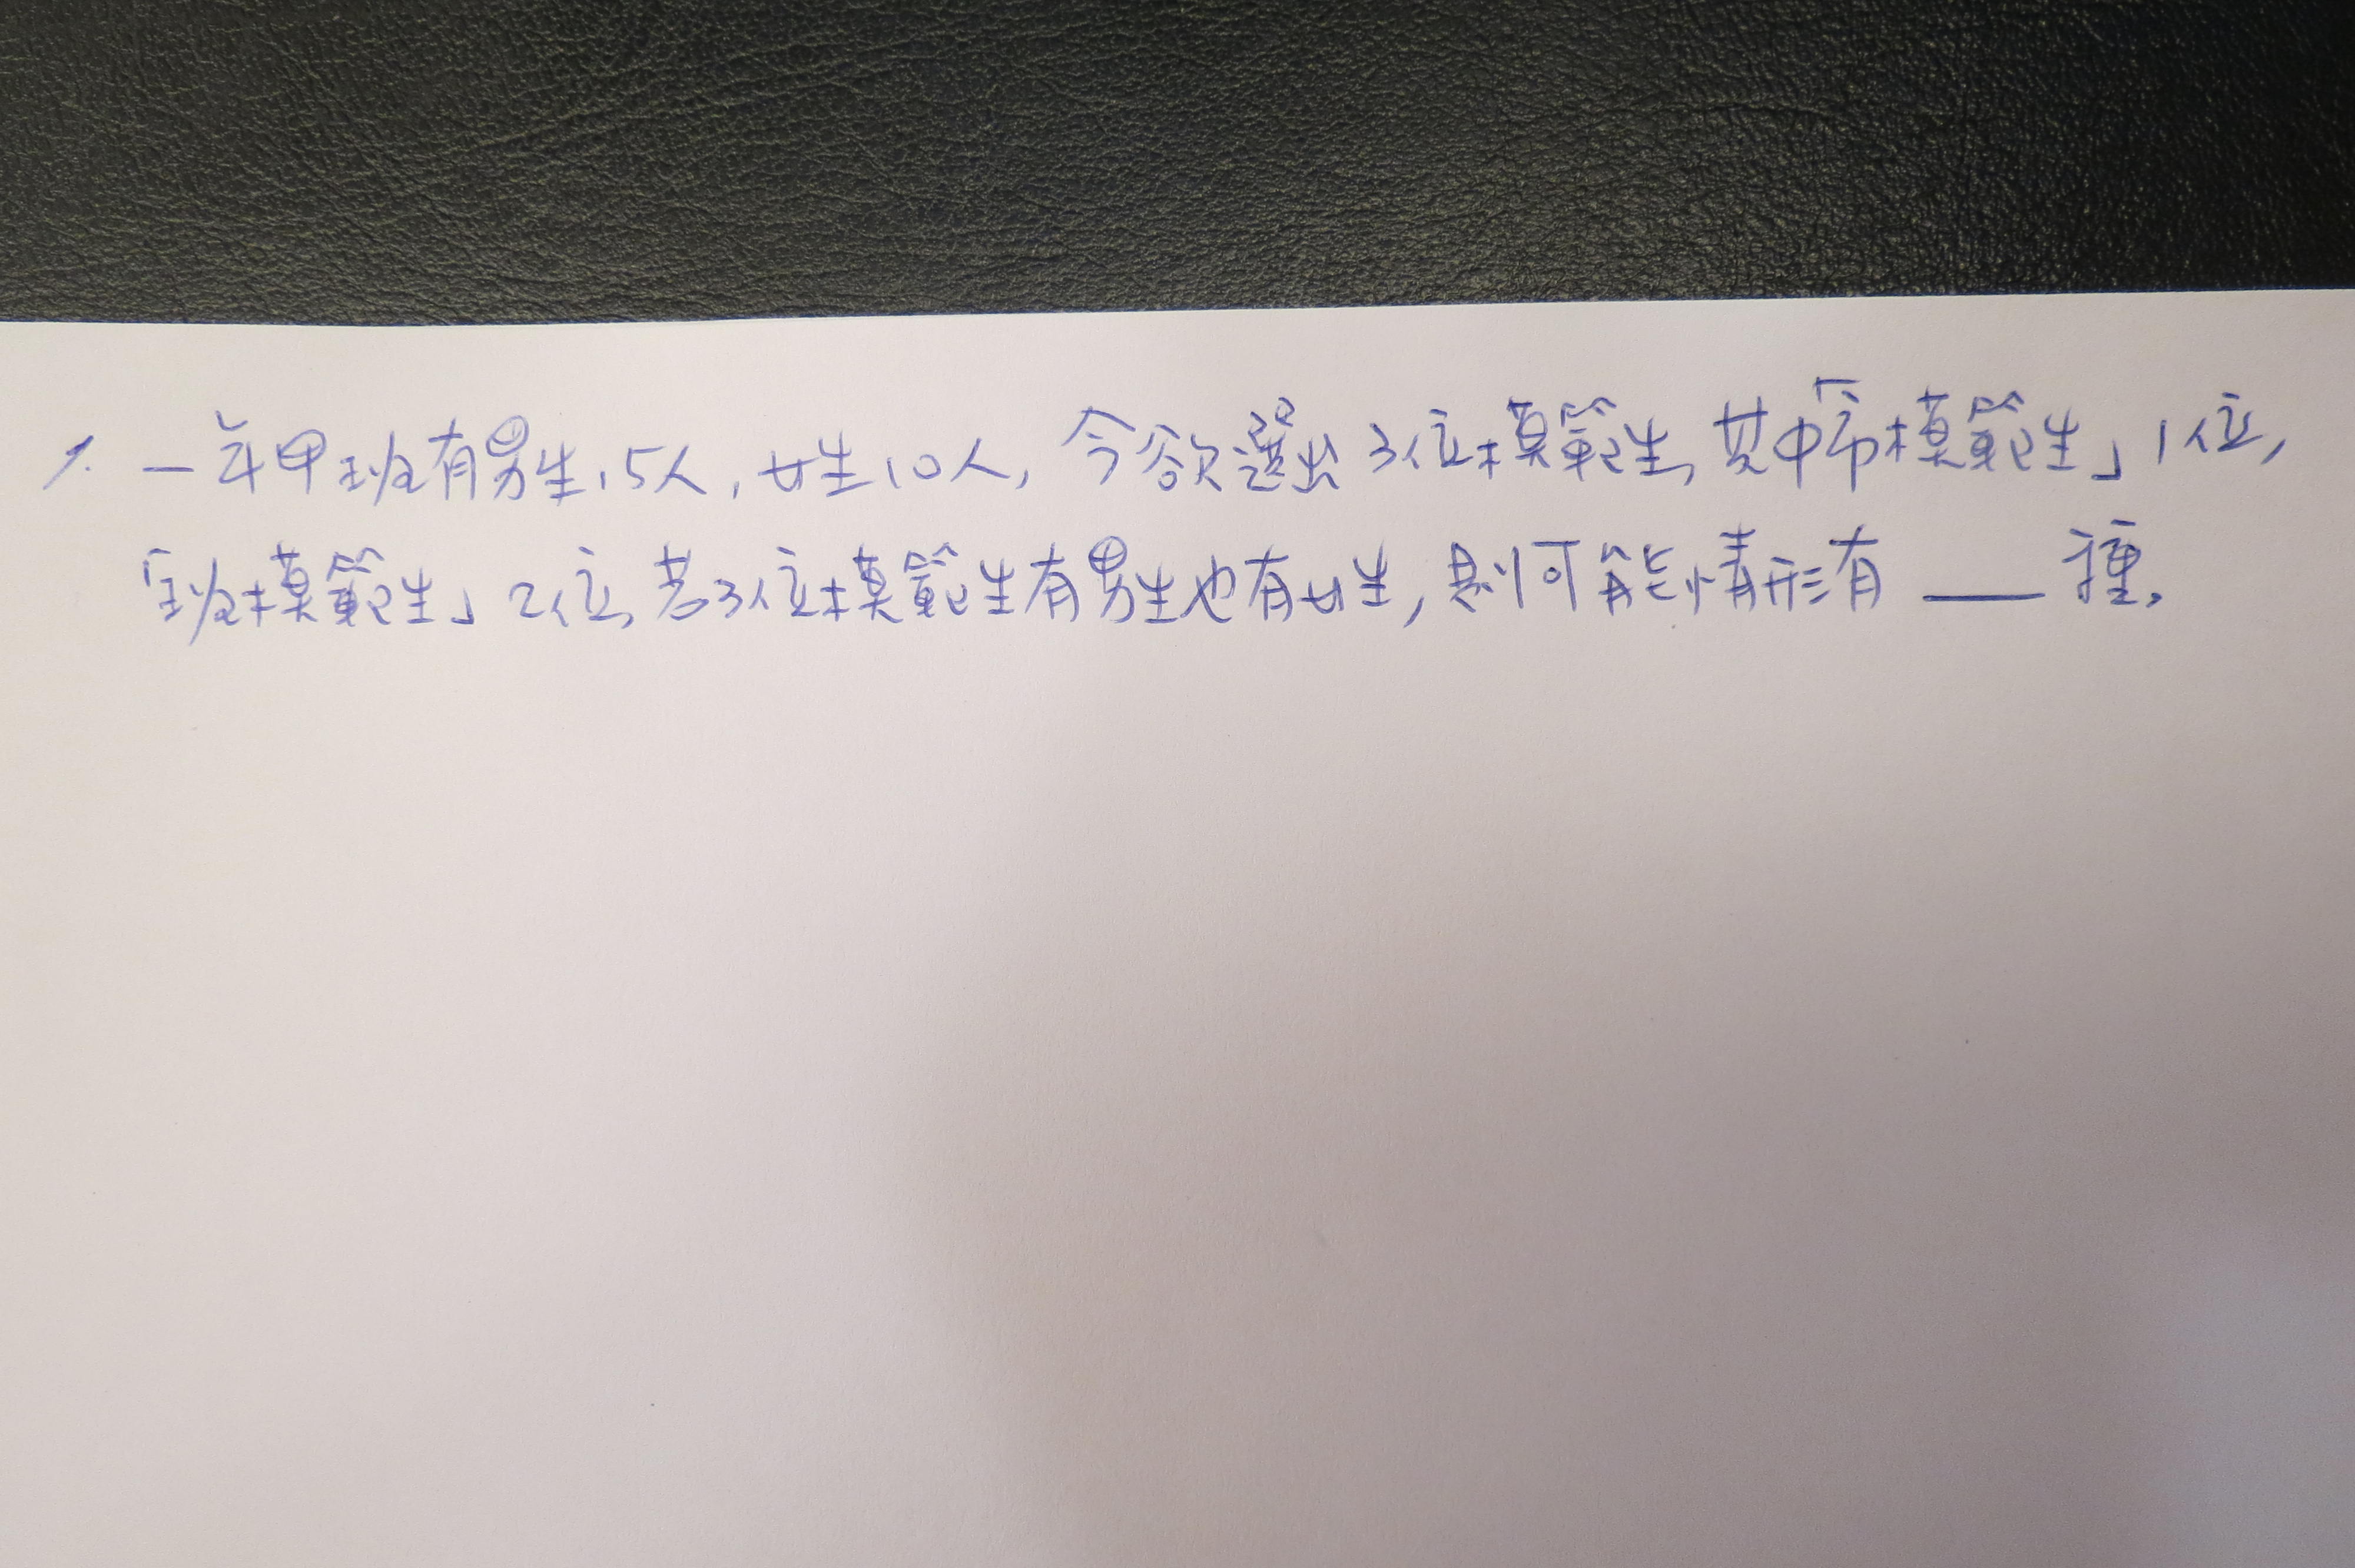 1. 一年甲班有男生15人,女生10人,今欲選出3位模範生,其中「市模範生」1位,
「班模範生」2位,若3位模範生有男生也有女生,則可能情形有 ____ 種.